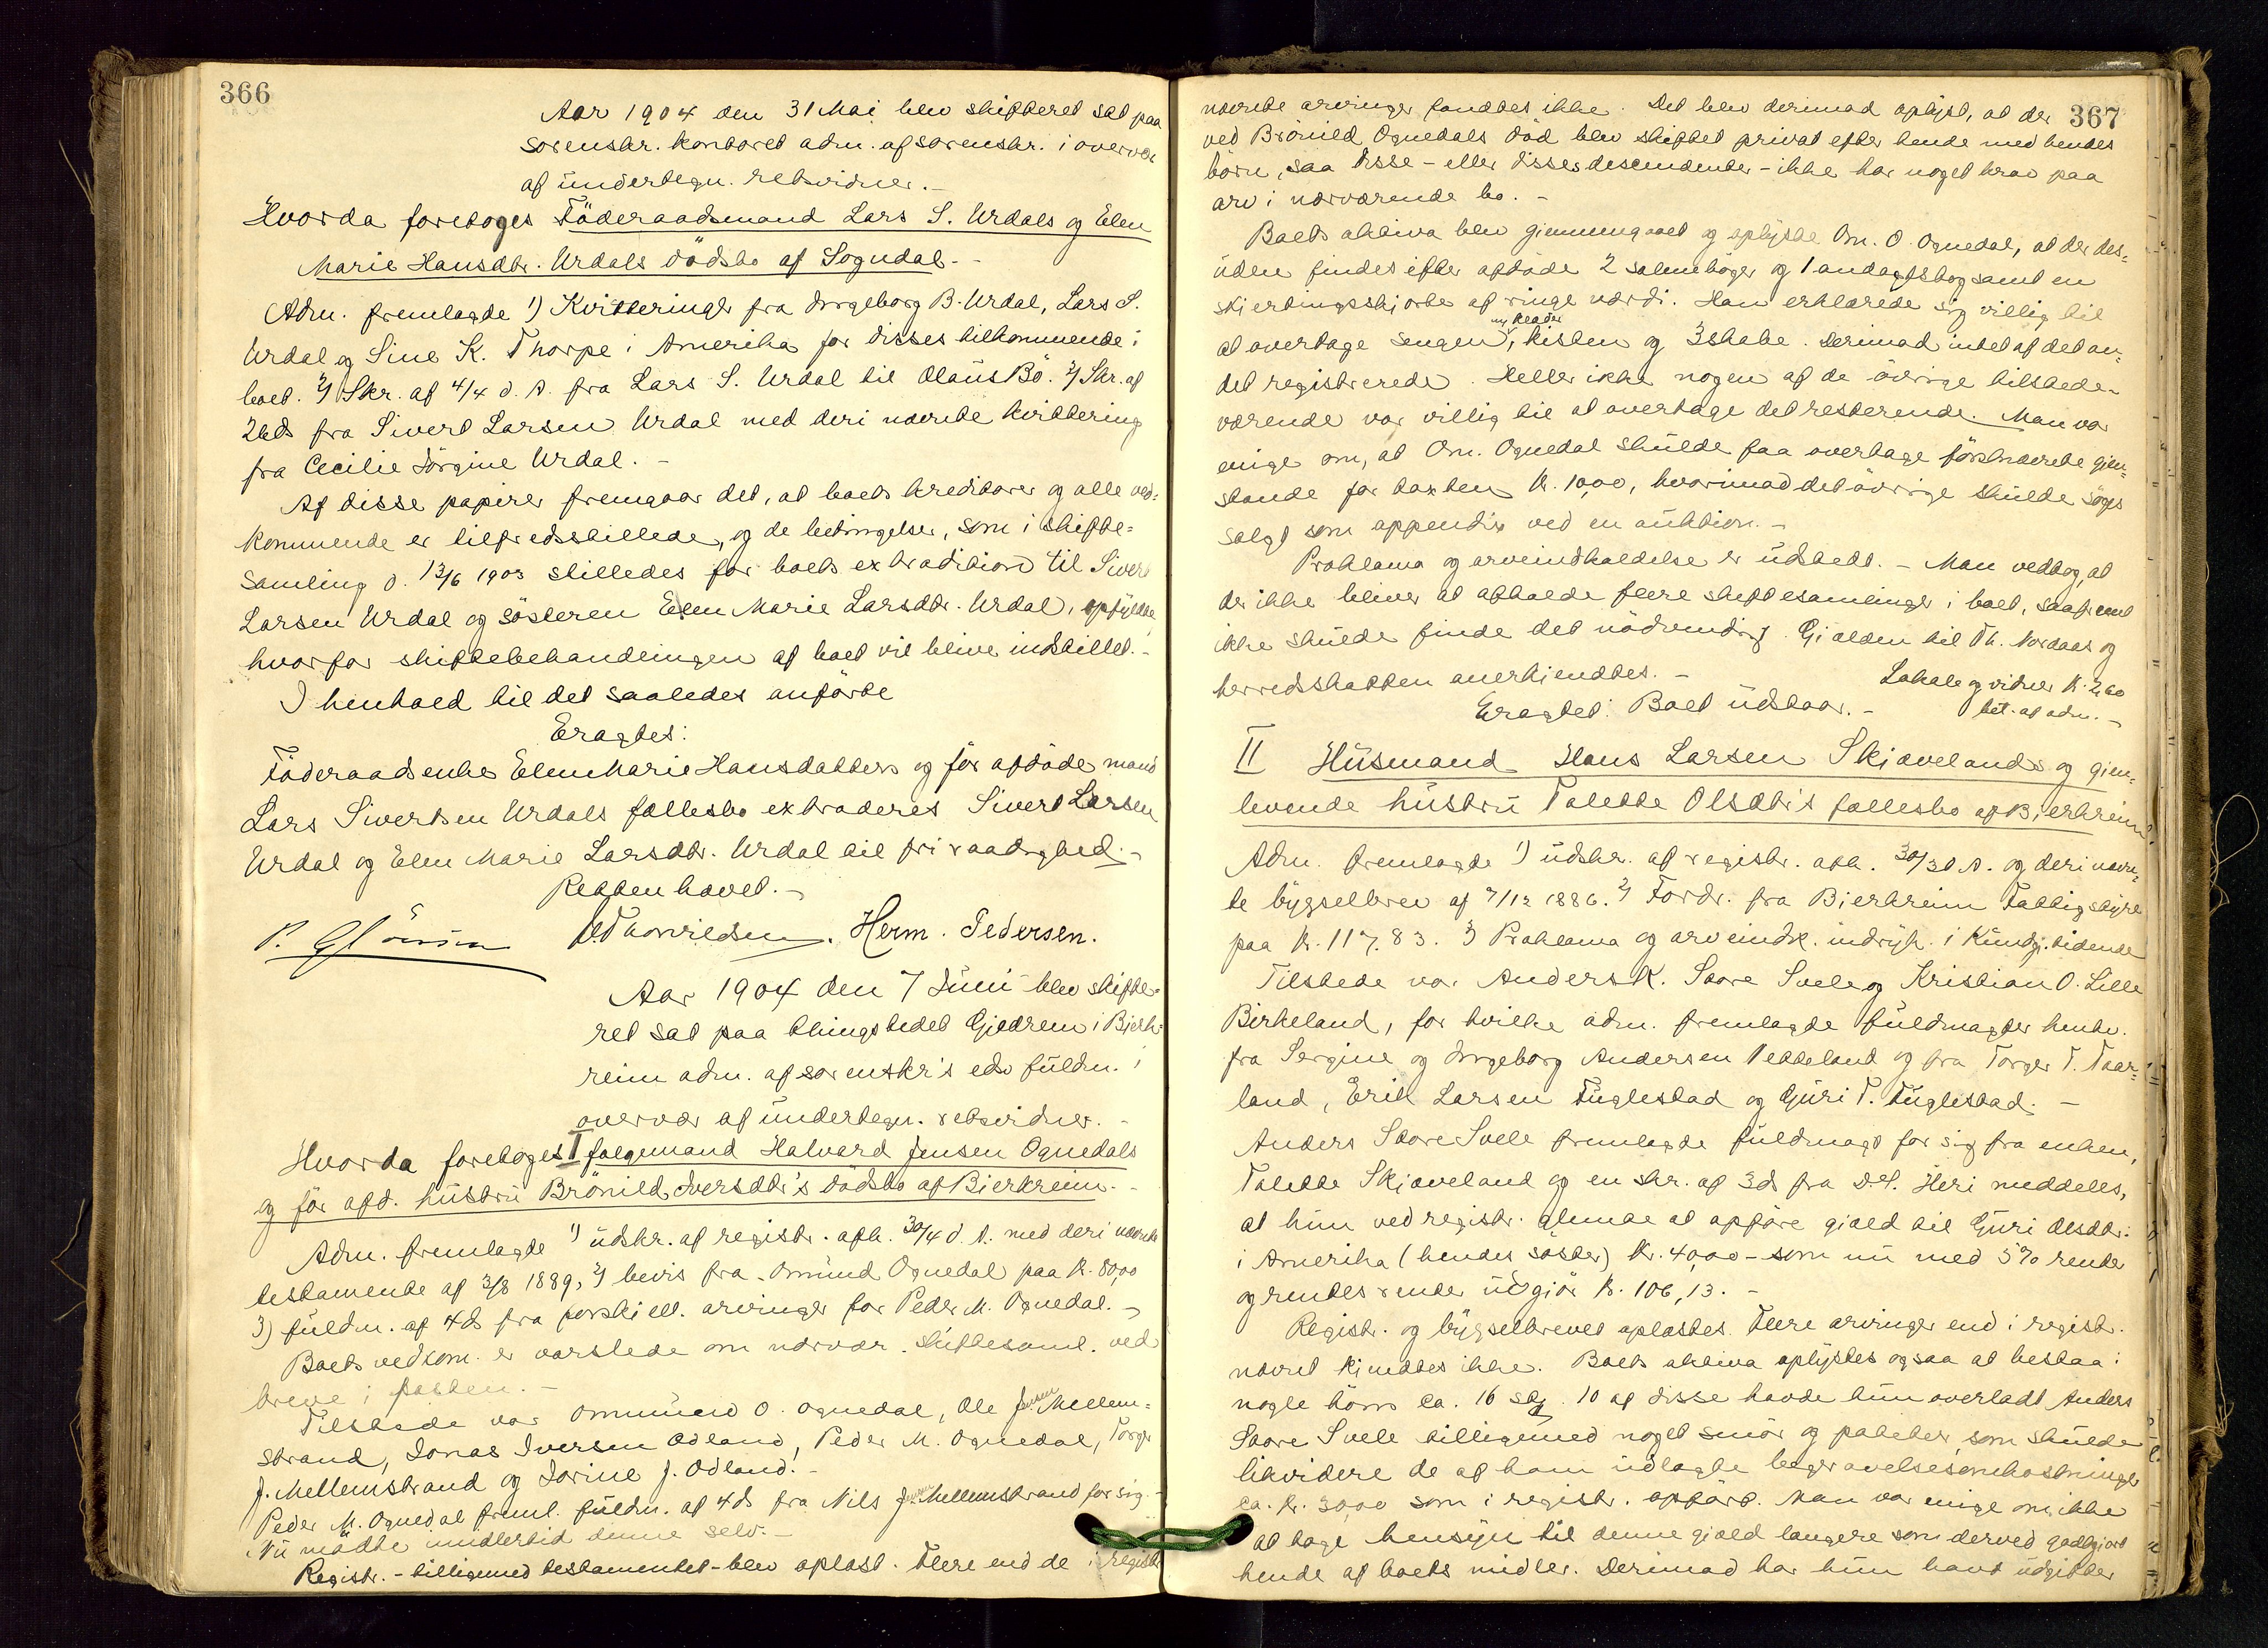 366
Aar 1904 den 31 Mai blev skifteret sat paa
sorenskr. kontoret adm. af sorenskr. i overvær
af undertegn. retsvidner.-
Hvorda foretoges Föderaadsmand Lars S. Urdals og Elen
Marie Hansdtr. Urdals dödsbo af Sogndal.-
Adm. fremlagde 1) Kvitteringer fra Ingeborg B. Urdal, Lars S.
Urdal og Sine K. Thorpe i Amerika for disses tilkommende i
boet. 2) Skr. af 4/4 d. A. fra Lars S. Urdal til Olaus Bö. 3) Skr. af
26ds fra Sivert Larsen Urdal med deri nævnte kvittering
fra Cecilie Jörgine Urdal.-
Af disse papirer fremgaar det, at boets kreditorer og alle ved-
kommende er tilfredsstillede, og de betingelser, som i skifte-
samling d. 13/6 1903 stilledes for boets extradition til Sivert
Larsen Urdal og sösteren Elen Marie Larsdtr. Urdal, opfyldte,
hvorfor skiftebehandlingen af boet vil blive indstillet.-
I henhold til det saaledes anförte
Eragtes:
Föderaadsenke Elen Marie Hansdatters og för afdöde mand
Lars Sivertsen Urdals fællesbo extraderes Sivert Larsen
Urdal og Elen Marie Larsdtr. Urdal til fri raadighed.-
Retten hævet.-
Herm. Pedersen.
Aar 1904 den 7 Juni blev skifte-
ret sat paa thingstedet Gjedrem i Bjerk-
reim adm. af sorenskr's eds. fuldm. i
overvær af undertegn. retsvidner.-
Hvorda foretoges I folgemand Halvard Jensen Ognedals
og för afd. hustru Brönild Iversdtr's dödsbo af Bjerkreim.-
Adm. fremlagde 1) udskr. af registr. afh. 30/4 d. A. med deri nævnte
testamente af 3/8 1889, 2) bevis fra Omund Ognedal paa K. 80,00
3) fuldm. af 4ds fra forskjell. arvinger for Peder M. Ognedal.-
Boets vedkom. er varslede om nærvær. skiftesaml. ved
breve i posten.-
Tilstede var Ommund O. Ognedal, Ole Jensen Mellem-
strand, Jonas Iversen Odland, Peder M. Ognedal, Torger
J. Mellemstrand og Jorine J. Odland.-
Peder M. Ognedal freml. fuldm. af 4ds fra Nils Jensen Mellemstrand for sig.-
Nu mödte imidlertid denne selv.-
Registr. - tilligemed testamentet - blev oplæst. Flere end de i registr.
367
nævnte arvinger fandtes ikke. Det blev derimod oplyst, at der
ved Brönild Ognedals död blev skiftet privat efter hende med hendes
börn, saa disse - eller disses descendenter - ikke har noget krav paa
arv i nærværende bo.-
Boets aktiva blev gjennemgaaet og oplyste Om. O. Ognedal, at der des-
uden findes efter afdöde 2 salmeböger og 1 andagtsbog samt en
skjertingsskjorte af ringe værdi. Han erklærede sig villig til
m klæder
at overtage sengen, kisten og 3 skabe. Derimod intet af det an-
det registrerede. Heller ikke nogen af de övrige tilstede-
værende var villig til at overtage det resterende. Man var
enige om, at Om. Ognedal skulde faa overtage förstnævnte gjen-
stande for taxten K. 10,00, hvorimod det övrige skulde söges
solgt som appendix ved en auktion.-
Proklama og arveindkaldelse er udstedt.- Man vedtog, at
der ikke bliver at afholde flere skiftesamlinger i boet, saafremt
ikke skulde finde det nödvendigt. Gjælden til Th. Nordaas og
herredskatten anerkjendtes.-
Lokale og vidner K. 2,60
bet. af adm.-
Eragtet: Boet udstaar.-
II Husmand Hans Larsen Skjævelands og gjen-
levende hustru Talette Olsdtr's fællesbo af Bjerkreim.
Adm. fremlagde 1) udskr. af registr. afh. 30/3 d. A. og deri nævn-
te bygselbrev af 7/12 1886. 2) Fordr. fra Bjerkreim Fattigstyre
paa K. 117.83. 3) Proklama og arveindk. indryk. i Kundgj. tidende
Tilstede var Anders K. Store Svele og Kristian O. Lille
Birkeland, for hvilke adm. fremlagde fuldmagter henh.
fra Sergine og Ingeborg Andersen Vetteland og fra Torger T. Taar-
land, Erik Larsen Fuglestad og Guri T. Fuglestad.-
Anders Store Svele fremlagde fuldmagt for sig fra enken,
Talette Skjæveland og en skr. af 3ds fra D. S. Heri meddeles,
at hun ved registr. glemte at opföre gjæld til Guri Olsdtr.
i Amerika (hendes söster) Kr. 40,00 - som nu med 5% rente
og rentes rente udgjör K. 106,13.-
Registr. og bygselbrevet oplæstes. Flere arvinger end i registr.
nævnt kjendtes ikke. Boets aktiva oplystes ogsaa at bestaa i
nogle törv ca. 16 stk. 10 af disse havde hun overladt Anders
Store Svele tilligemed noget smör og poteter, som skulde
likvidere de af ham udlagte begravelsesomkostninger
ca. K. 30,00 som i registr. opfört. Man var enige om ikke
at tage hensyn til denne gjæld længere som derved godtgjort
hende af boets midler. Derimod har hun havt udgifter